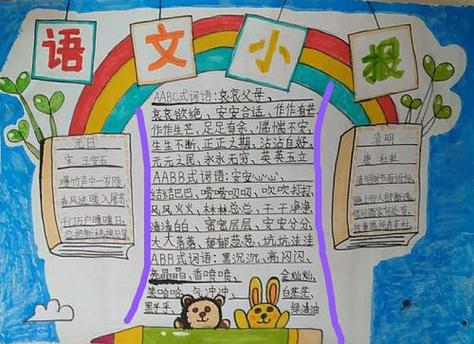 语文小报
AABC式词语:哀哀父母、
哀哀欲绝、安安合适、作作有芒、
作作生芒、足足有余、惴惴不安、
生生不断、正正之旗、沾沾自好、
元元之民、永永无穷、英英玉立
AABB式词语:安安心心、
结结巴巴、唠唠叨叨、吹吹打打、
风风火火、林林总总、干干净净、
清清白白、密密层层、安安分分、
大大落落、郁郁葱葱、坑坑洼洼
ABB式词语:黑沉沉、亮闪闪、
亮晶晶、香喷喷、金灿灿、
笑哈哈、气冲冲、白茫茫、
黑乎乎、绿油油
元日
宋 王安石
爆竹声中一岁除
春风送暖入屠苏
千门万户曈曈日
总把新桃换旧符
清明
唐 杜牧
清明时节雨纷纷
路上行人欲断魂